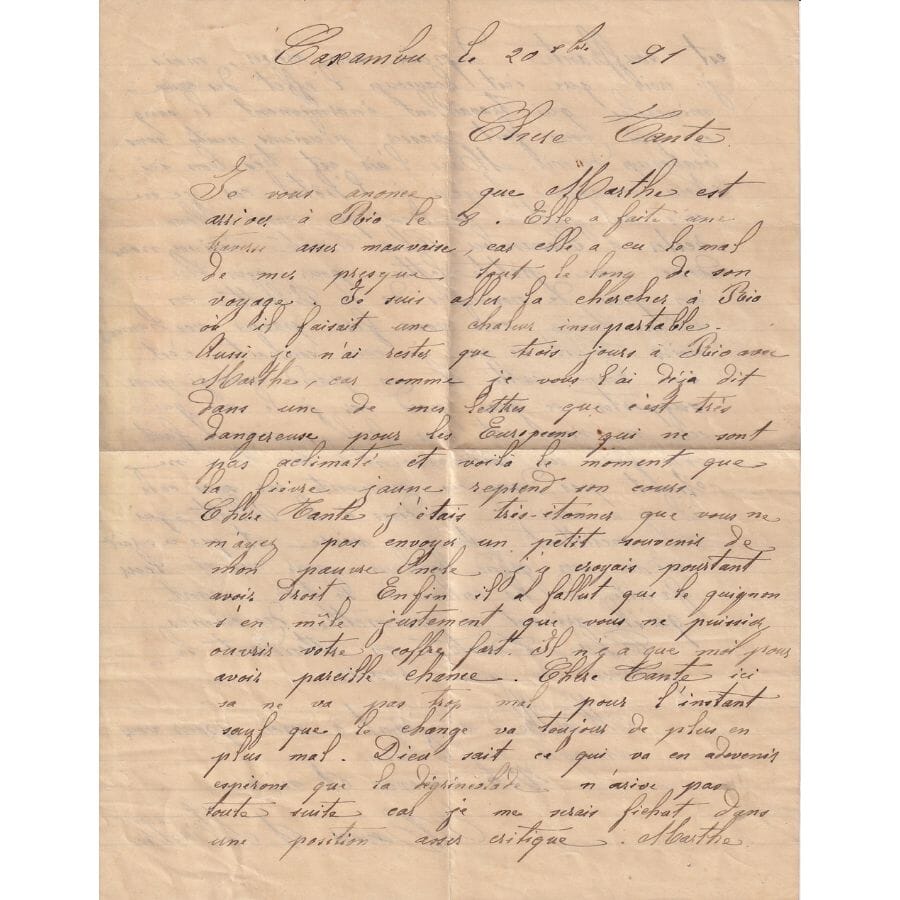 Caxambu le 20 xbre 91
Chere Tante.
Je vous anonce que Marthe est
arriver à Rio le 8. Elle a faite une
traversé asser mauvaise, car elle a eu le mal
de mer presque tout le long de son
voyage. Je suis aller la chercher à Rio
où il faisait une chaleur insuportable.
Aussi je n'ai rester que trois jours à Rio avec
Marthe, car comme je vous l'ai déja dit
dans une de mes lettres que c'est très
dangereuse pour les Européens qui ne sont
pas aclimaté et voilà le moment que
la fièvre jaune reprend son cours.
Chere Tante j'étais très-étonner que vous ne
m'ayez pas envoyer un petit souvenir de
mon pauvre Oncle j'y croyais pourtant
avoir droit. Enfin il a fallut que le guignon
s'en mêle justement que vous ne puissiez
ouvrir votre coffre fort. Il n'y a que moi pour
avoir pareille chance. Chere Tante ici
sa ne va pas trop mal pour l'instant
sauf que le change va toujour de plus en
plus mal. Dieu sait ce qui va en adevenir
espérons que la dégringolade n'arive pas
toute suite car je me serais fichat dans
une position asser critique. Marthe